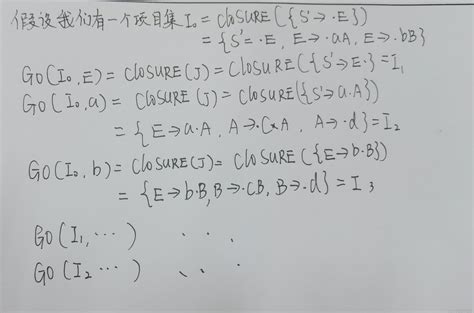 假设我们有一个项目集 I₀ = CLOSURE({S'→·E})
= {S'=·E, E→·aA, E→·bB}
GO(I₀,E) = CLOSURE(J) = CLOSURE({S'→E·} = I₁
GO(I₀,a) = CLOSURE(J) = CLOSURE({S'→a·A})
= {E→a·A, A→·CA, A→·d} = I₂
GO(I₀,b) = CLOSURE(J) = CLOSURE({E→b·B})
= {E→b·B, B→·CB, B→·d} = I₃
GO(I₁,···) ···
GO(I₂···) ···